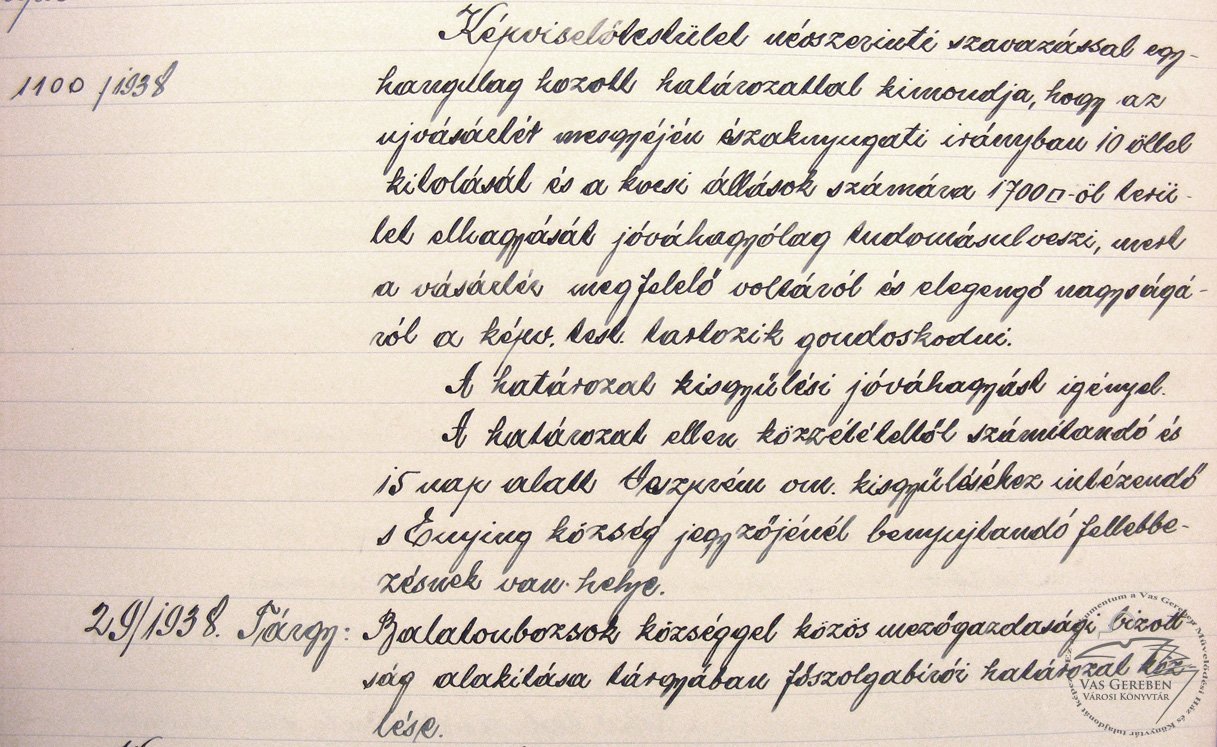 1100/1938
Képviselőtestület névszerinti szavazással egy-
hangulag hozott határozattal kimondja, hogy az
ujvásártér mesgyéjén északnyugati irányban 10 öllel
kitolását és a kocsi állások számára 1700□-öl terü-
let elhagyását jóváhagyólag tudomásulveszi, mert
a vásártér megfelelő voltáról és elegengő nagyságá-
ról a képv. test. tartozik gondoskodni.
A határozat kisgyűlési jóváhagyást igényel.
A határozat ellen közzétételtől számítandó és
15 nap alatt Veszprém vm. kisgyűléséhez intézendő
s Enying község jegyzőjénél benyujtandó fellebbe-
zésnek van helye.
29/1938. Tárgy: Balatonbozsok községgel közös mezőgazdasági bizott
ság alakitása tárgyában főszolgabírói határozat köz
lése.
VAS GEREBEN
VÁROSI KÖNYVTÁR